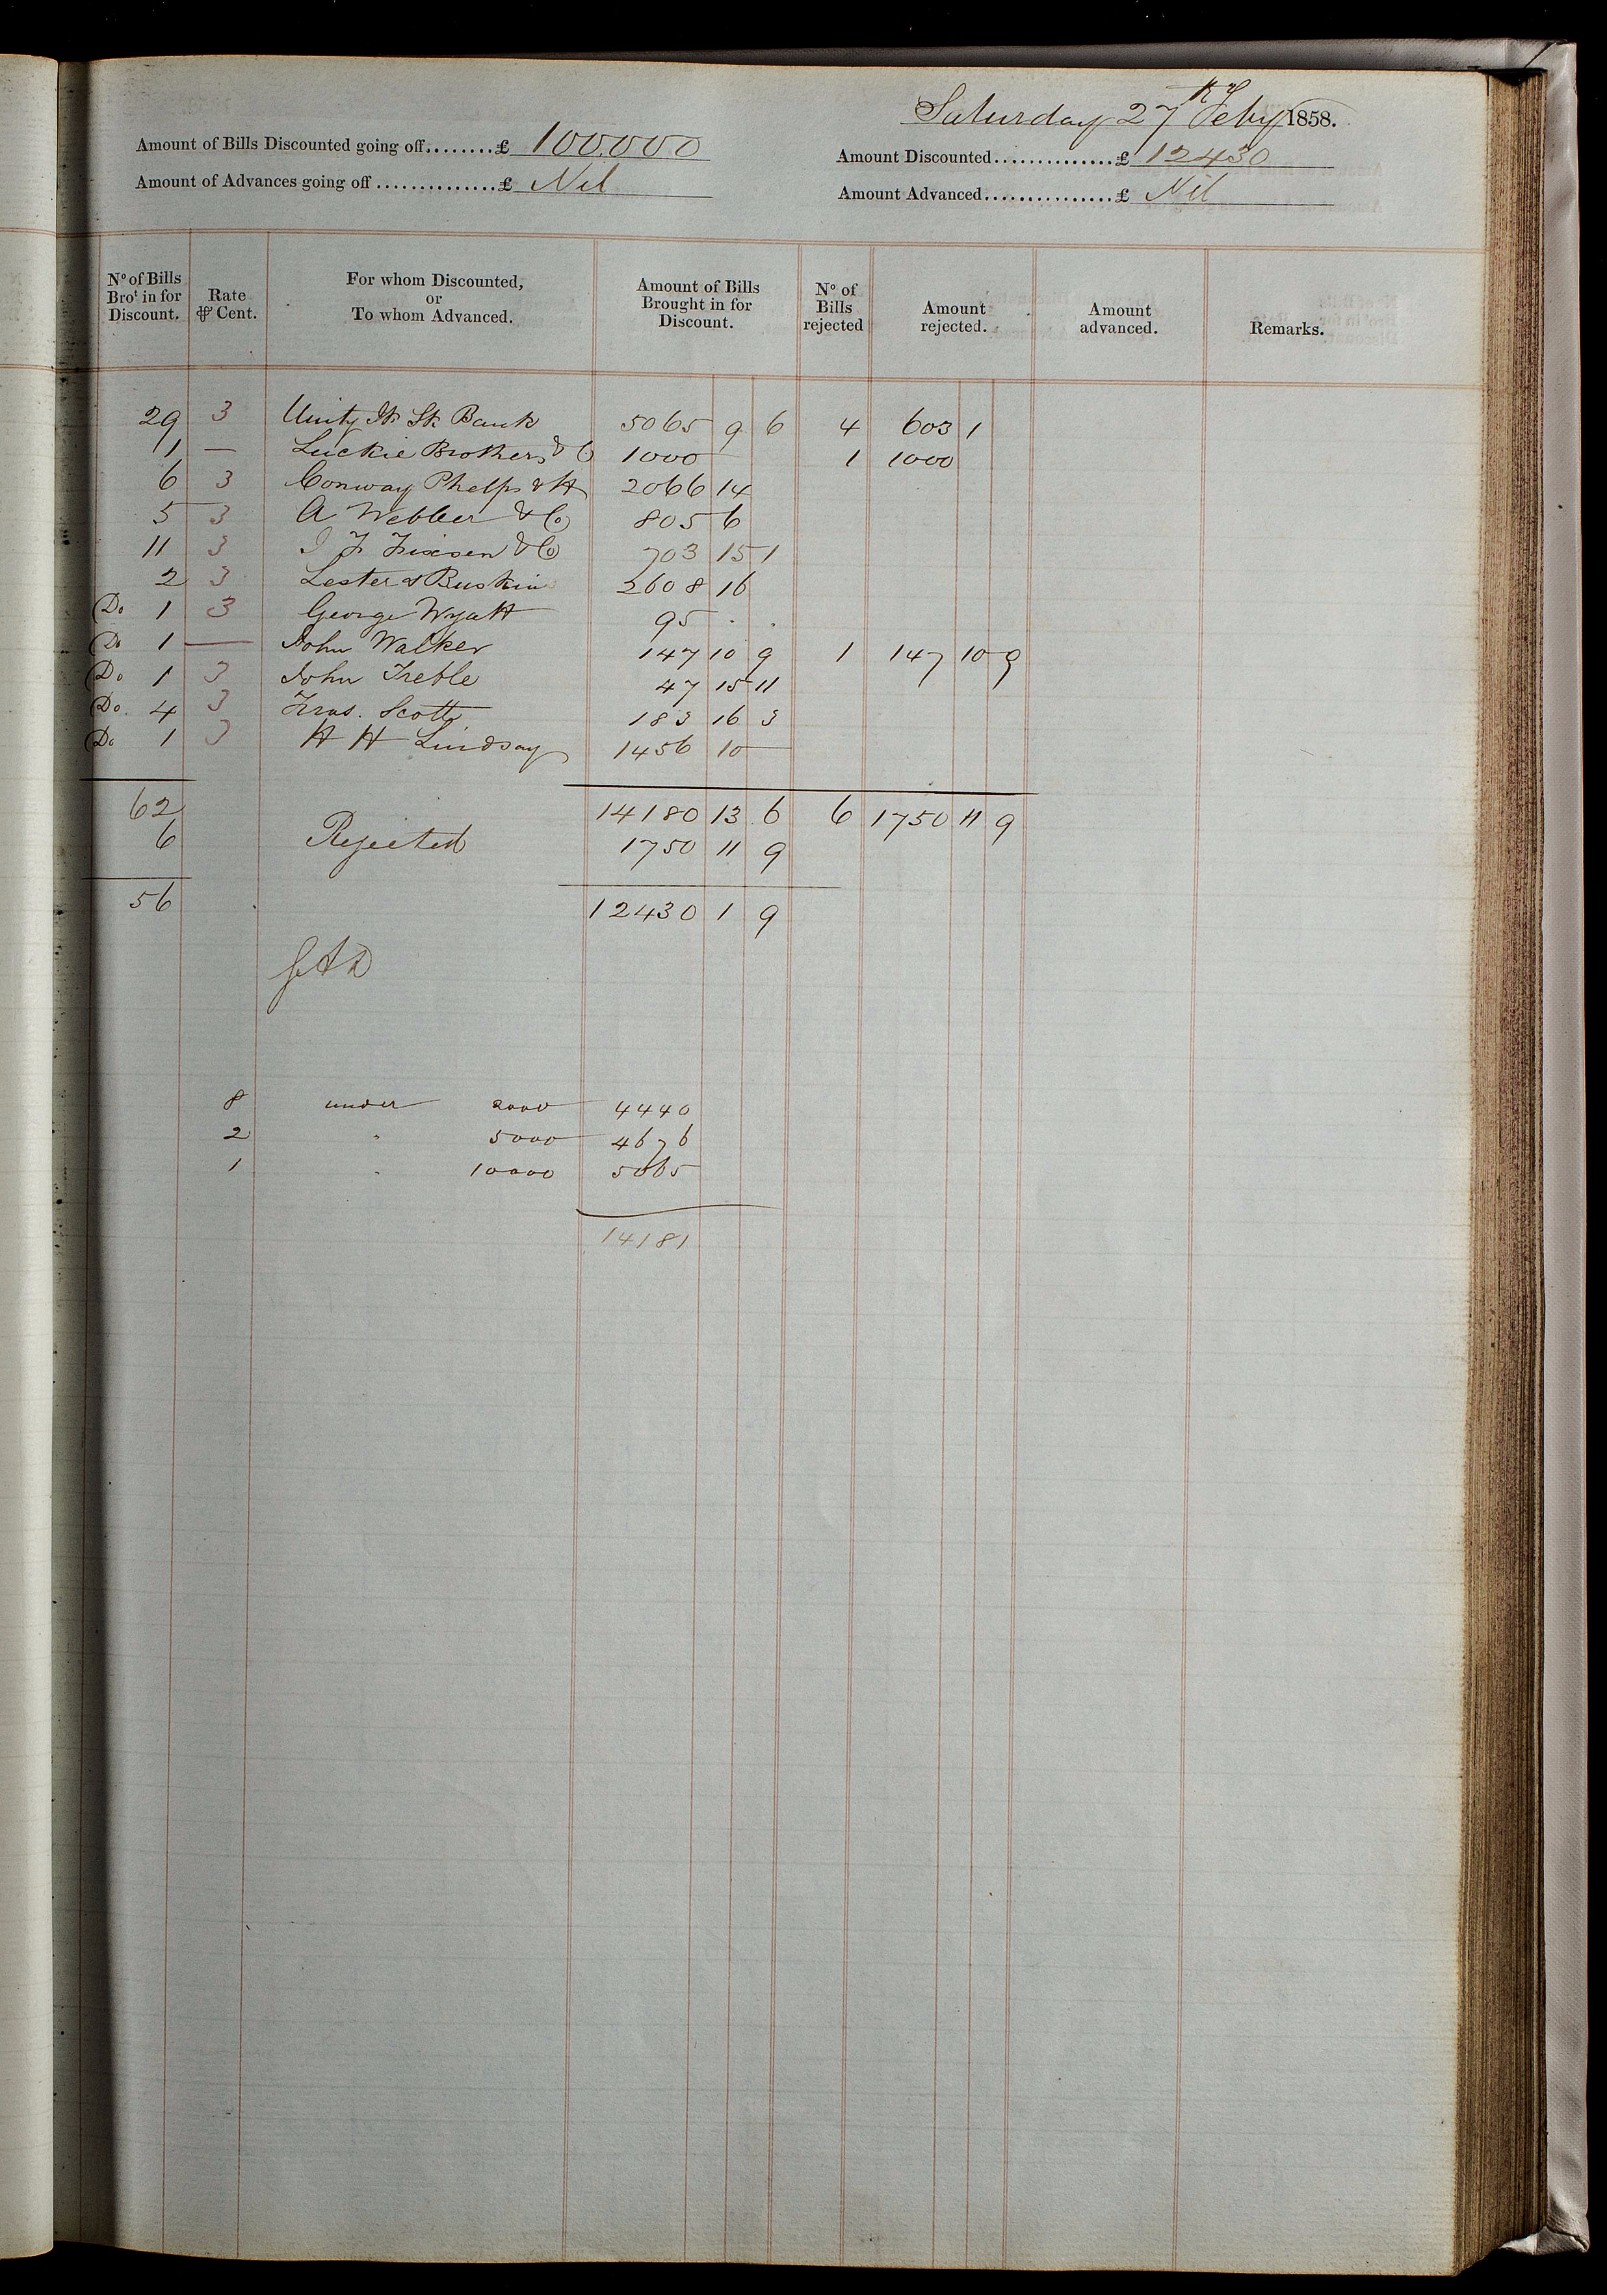 Saturday 27th Feby 1858.
Amount of Bills Discounted going off........£ 100.000
Amount Discounted..............£ 12430
Amount of Advances going off...............£ Nil
Amount Advanced................£ Nil
No of Bills Brot in for Discount. Rate ⅌ Cent. For whom Discounted, or To whom Advanced. Amount of Bills Brought in for Discount. No of Bills rejected Amount rejected. Amount advanced. Remarks.
29 3 Unity Jt Sk Bank 5065 9 6 4 603 1
1 — Luckie Brothers & Co 1000 1 1000
6 3 Conway Phelps & H 2066 14
5 3 A Webber & Co 805 6
11 3 & Co 703 15 1
2 3 Lester & Ruskin 2608 16
Do 1 3 George Wyatt 95 . .
Do 1 — John Walker 147 10 9 1 147 10 9
Do 1 3 John Treble 47 15 11
Do. 4 3 Fras. Scott 183 16 3
Do 1 3 H H Lindsay 1456 10
62 14180 13 6 6 1750 11 9
6 Rejected 1750 11 9
56 12430 1 9
8 under 2000 4440
2 " 5000 4676
1 " 10000 5065
14181